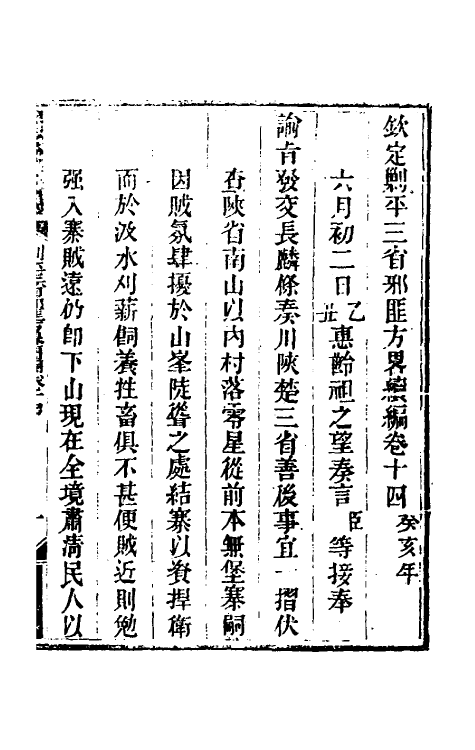 欽定剿平三省邪匪方畧續編卷十四癸亥年
六月初二日乙丑惠齡祖之望奏言臣等接奉
諭旨發交長麟條奏川陜楚三省善後事宜一摺伏
查陜省南山以內村落零星從前本無堡寨嗣
因賊氛肆擾於山峯陡聳之處結寨以資捍衛
而於汲水刈薪飼養牲畜俱不甚便賊近則勉
强入寨賊遠仍卽下山現在全境肅清民人以